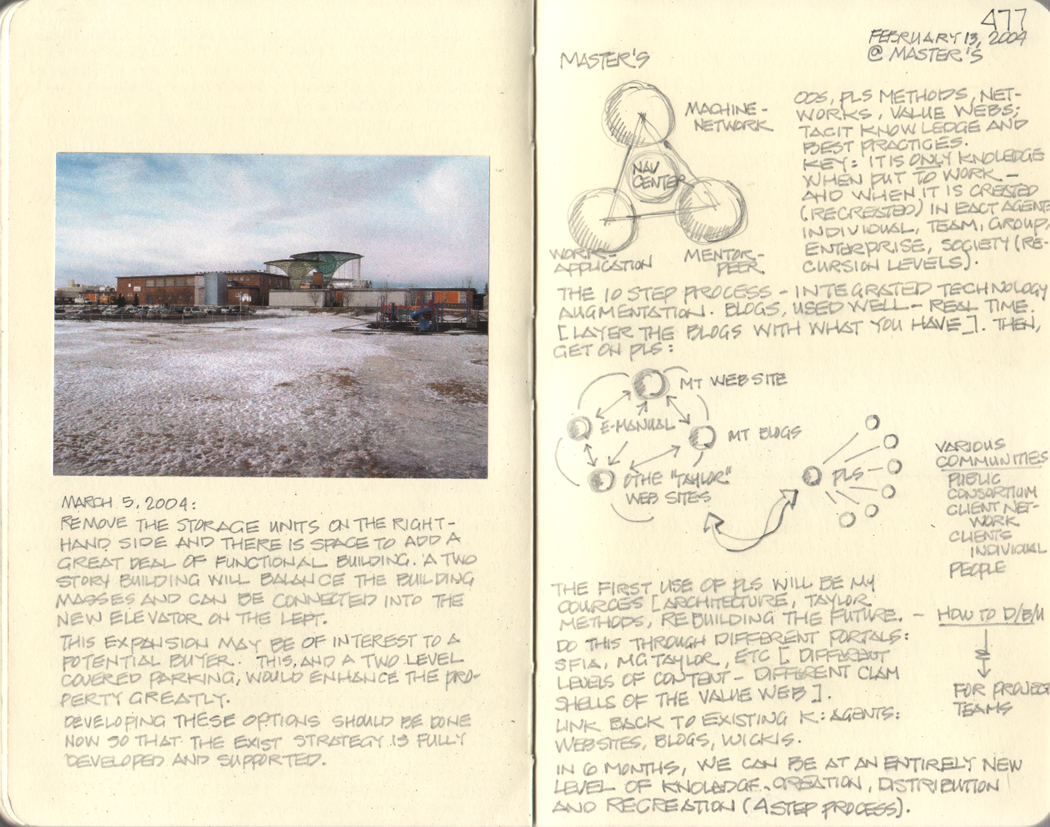 MARCH 5, 2004:
REMOVE THE STORAGE UNITS ON THE RIGHT-
HAND SIDE AND THERE IS SPACE TO ADD A
GREAT DEAL OF FUNCTIONAL BUILDING. A TWO
STORY BUILDING WILL BALANCE THE BUILDING
MASSES AND CAN BE CONNECTED INTO THE
NEW ELEVATOR ON THE LEFT.
THIS EXPANSION MAY BE OF INTEREST TO A
POTENTIAL BUYER. THIS, AND A TWO LEVEL
COVERED PARKING, WOULD ENHANCE THE PRO-
PERTY GREATLY.
DEVELOPING THESE OPTIONS SHOULD BE DONE
NOW SO THAT THE EXIST STRATEGY IS FULLY
DEVELOPED AND SUPPORTED.
477
FEBRUARY 13, 2004
@ MASTER'S
MASTER'S
MACHINE-
NETWORK
NAV
CENTER
WORK-
APPLICATION
MENTOR-
PEER
ODS, PLS METHODS, NET-
WORKS, VALUE WEBS;
TACIT KNOWLEDGE AND
BEST PRACTICES.
KEY: IT IS ONLY KNOLEDGE
WHEN PUT TO WORK -
AND WHEN IT IS CREATED
(RECREATED) IN EACT AGENT:
INDIVIDUAL, TEAM, GROUP,
ENTERPRISE, SOCIETY (RE-
CURSION LEVELS).
THE 10 STEP PROCESS - INTEGRATED TECHNOLOGY
AUGMENTATION. BLOGS, USED WELL - REAL TIME.
[LAYER THE BLOGS WITH WHAT YOU HAVE]. THEN,
GET ON PLS:
MT WEB SITE
E-MANUAL
MT BLOGS
OTHE "TAYLOR"
WEB SITES
PLS
VARIOUS
COMMUNITIES
PUBLIC
CONSORTIUM
CLIENT NET-
WORK
CLIENTS
INDIVIDUAL
PEOPLE
THE FIRST USE OF PLS WILL BE MY
COURCES [ARCHITECTURE, TAYLOR
METHODS, REBUILDING THE FUTURE. -
DO THIS THROUGH DIFFERENT PORTALS:
SFIA, MG TAYLOR, ETC [DIFFERENT
LEVELS OF CONTENT - DIFFERENT CLAM
SHELLS OF THE VALUE WEB].
LINK BACK TO EXISTING K: AGENTS:
WEBSITES, BLOGS, WICKIS.
HOW TO D/B/U
FOR PROJECT
TEAMS
IN 6 MONTHS, WE CAN BE AT AN ENTIRELY NEW
LEVEL OF KNOLADGE CREATION, DISTRIBUTION
AND RECREATION (4 STEP PROCESS).